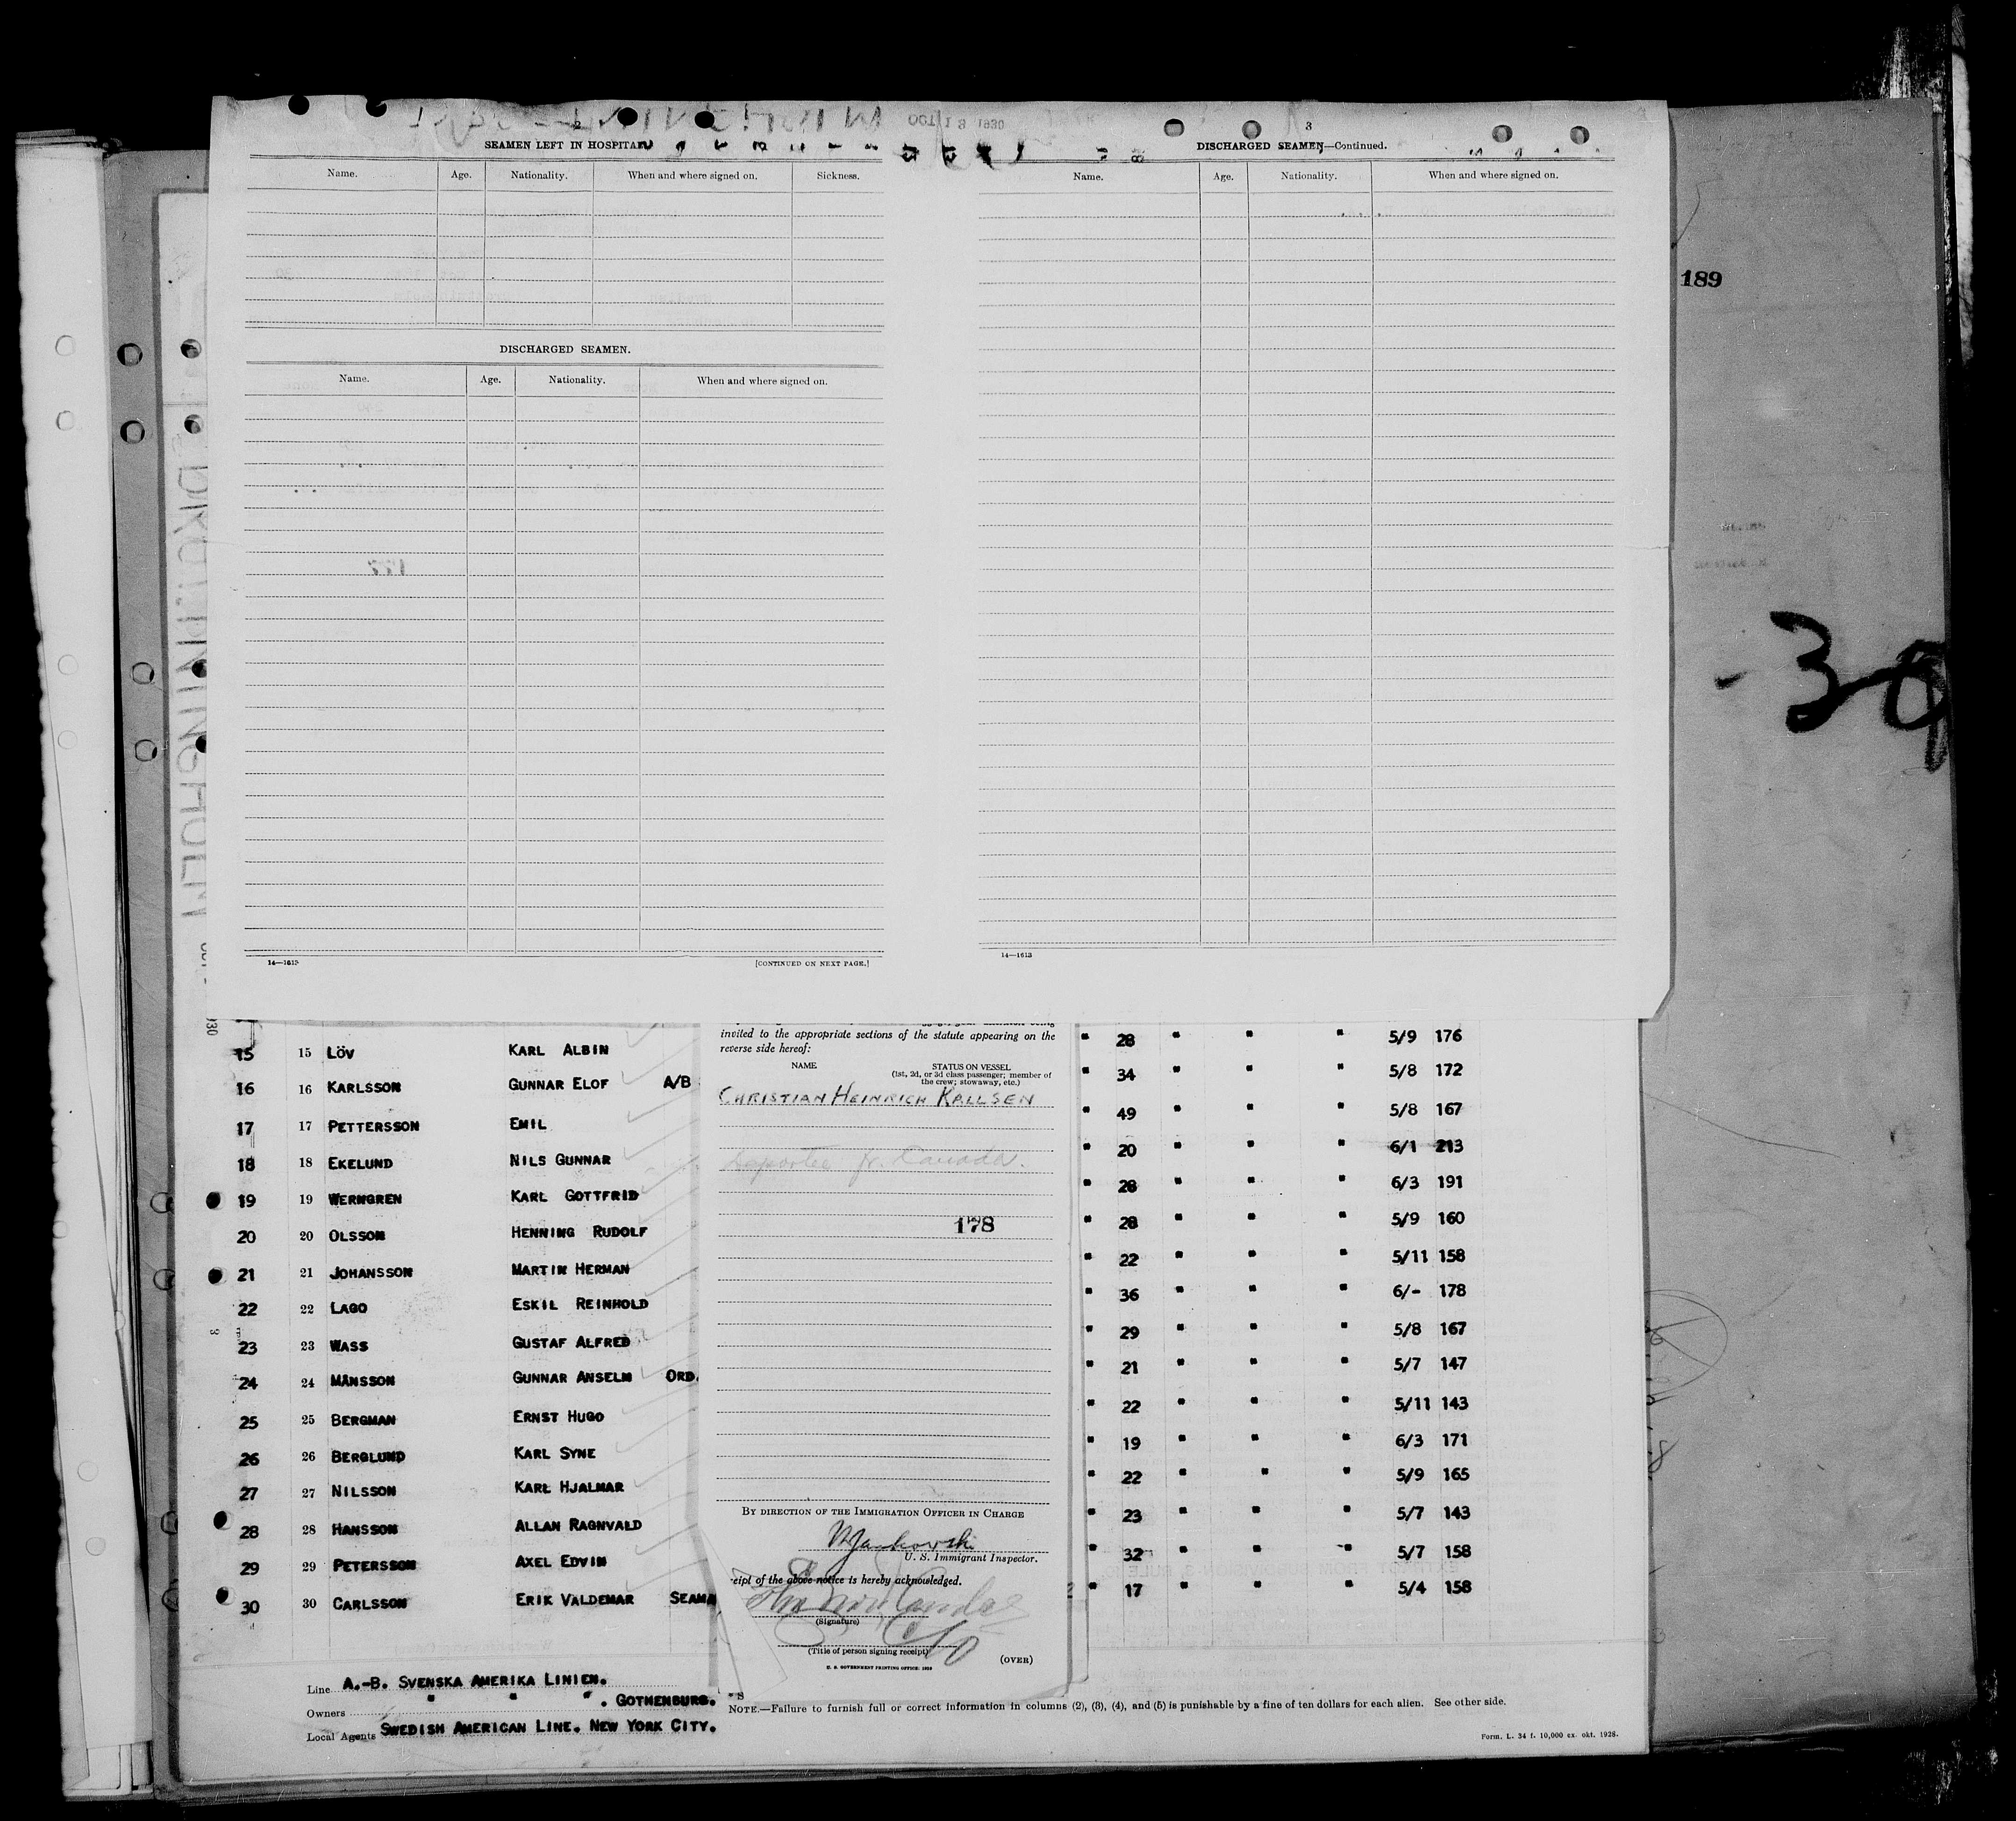 OCT 13 1930
2
SEAMEN LEFT IN HOSPITAL
Name. Age. Nationality. When and where signed on. Sickness.
DISCHARGED SEAMEN.
Name. Age. Nationality. When and where signed on.
177
14—1613 [CONTINUED ON NEXT PAGE.]
3
DISCHARGED SEAMEN—Continued.
Name. Age. Nationality. When and where signed on.
14—1613
189
15 15 LÖV KARL ALBIN
16 16 KARLSSON GUNNAR ELOF A/B
17 17 PETTERSSON EMIL
18 18 EKELUND NILS GUNNAR
19 19 WERNGREN KARL GOTTFRID
20 20 OLSSON HENNING RUDOLF
21 21 JOHANSSON MARTIN HERMAN
22 22 LAGO ESKIL REINHOLD
23 23 WASS GUSTAF ALFRED
24 24 MÅNSSON GUNNAR ANSELM ORD.
25 25 BERGMAN ERNST HUGO
26 26 BERGLUND KARL SYNE
27 27 NILSSON KARL HJALMAR
28 28 HANSSON ALLAN RAGNVALD
29 29 PETERSSON AXEL EDVIN
30 30 CARLSSON ERIK VALDEMAR SEAMA
invited to the appropriate sections of the statute appearing on the
reverse side hereof:
NAME STATUS ON VESSEL
(1st, 2d, or 3d class passenger; member of
the crew; stowaway, etc.)
CHRISTIAN HEINRICH KALLSEN
Deportee fr. Canada.
178
BY DIRECTION OF THE IMMIGRATION OFFICER IN CHARGE
U. S. Immigrant Inspector.
eipt of the above notice is hereby acknowledged.
(Signature)
(Title of person signing receipt)
U. S. GOVERNMENT PRINTING OFFICE: 1928
(OVER)
" 28 " " " 5/9 176
" 34 " " " 5/8 172
" 49 " " " 5/8 167
" 20 " " " 6/1 213
" 28 " " " 6/3 191
" 28 " " " 5/9 160
" 22 " " " 5/11 158
" 36 " " " 6/- 178
" 29 " " " 5/8 167
" 21 " " " 5/7 147
" 22 " " " 5/11 143
" 19 " " " 6/3 171
" 22 " " " 5/9 165
" 23 " " " 5/7 143
" 32 " " " 5/7 158
" 17 " " " 5/4 158
Line A.-B. SVENSKA AMERIKA LINIEN.
Owners " " ". GOTHENBURG.
Local Agents SWEDISH AMERICAN LINE. NEW YORK CITY.
NOTE.—Failure to furnish full or correct information in columns (2), (3), (4), and (5) is punishable by a fine of ten dollars for each alien. See other side.
Form. L. 34 f. 10,000 ex. okt. 1928.